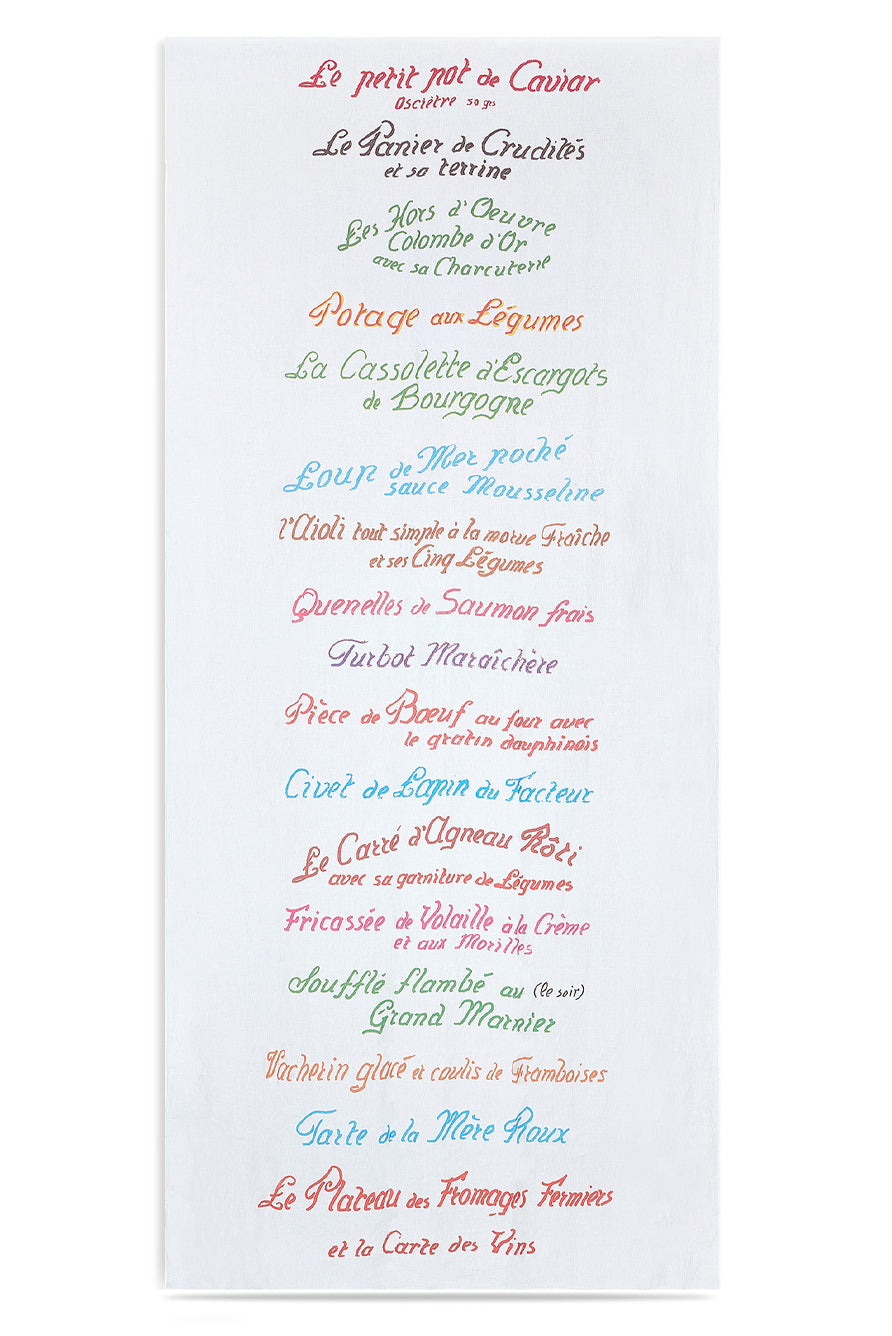 Le petit pot de Caviar
Osciètre 50 grs
Le Panier de Crudités
et sa terrine
Les Hors d'Oeuvre
Colombe d'Or
avec sa Charcuterie
Potage aux Légumes
La Cassolette d'Escargots
de Bourgogne
Loup de Mer poché
sauce Mousseline
l'Aioli tout simple à la morue Fraîche
et ses Cinq Légumes
Quenelles de Saumon frais
Turbot Maraîchère
Pièce de Bœuf au four avec
le gratin dauphinois
Civet de Lapin du Facteur
Le Carré d'Agneau Rôti
avec sa garniture de Légumes
Fricassée de Volaille à la Crème
et aux Morilles
Soufflé flambé au (le soir)
Grand Marnier
Vacherin glacé et coulis de Framboises
Tarte de la Mère Roux
Le Plateau des Fromages Fermiers
et la Carte des Vins